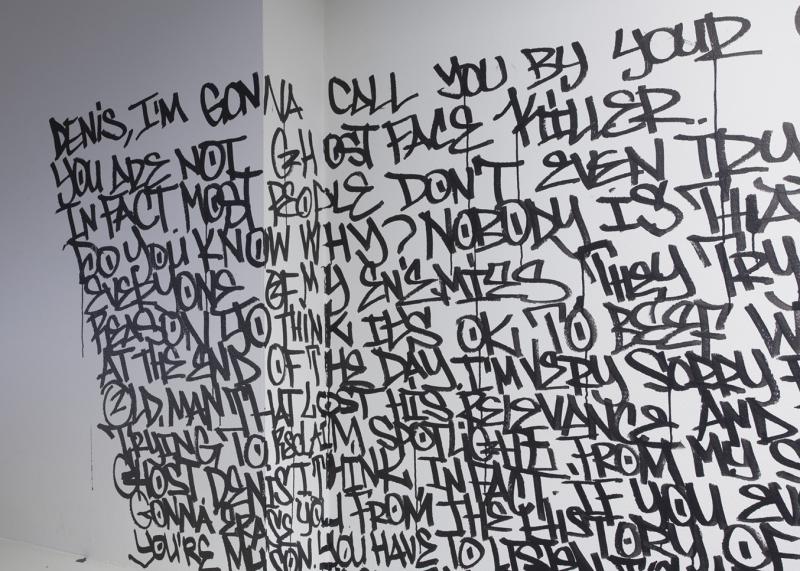 DENIS, I'M GONNA CALL YOU BY YOUR
YOU ARE NOT GHOST FACE KILLER.
IN FACT. MOST PEOPLE DON'T EVEN TRY
DO YOU KNOW WHY? NOBODY IS THA
EVERYONE OF MY ENEMIES THEY TRY
REASON TO THINK IT'S OK TO BEEF W
AT THE END OF THE DAY. I'M VERY SORRY
OLD. MAN THAT LOST HIS RELEVANCE AND
TRYING TO RECLAIM SPOTLIGHT. FROM MY S
GHOST DENIS THINK IN FACT. IF YOU EV
GONNA ERASE YOU FROM THE HISTORY OF
YOU'RE MY SON. YOU HAVE TO LISTEN